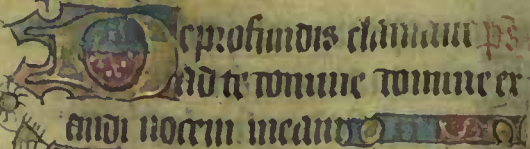 De profundis clamaui ps
ad te domine domine ex
audi uocem meam